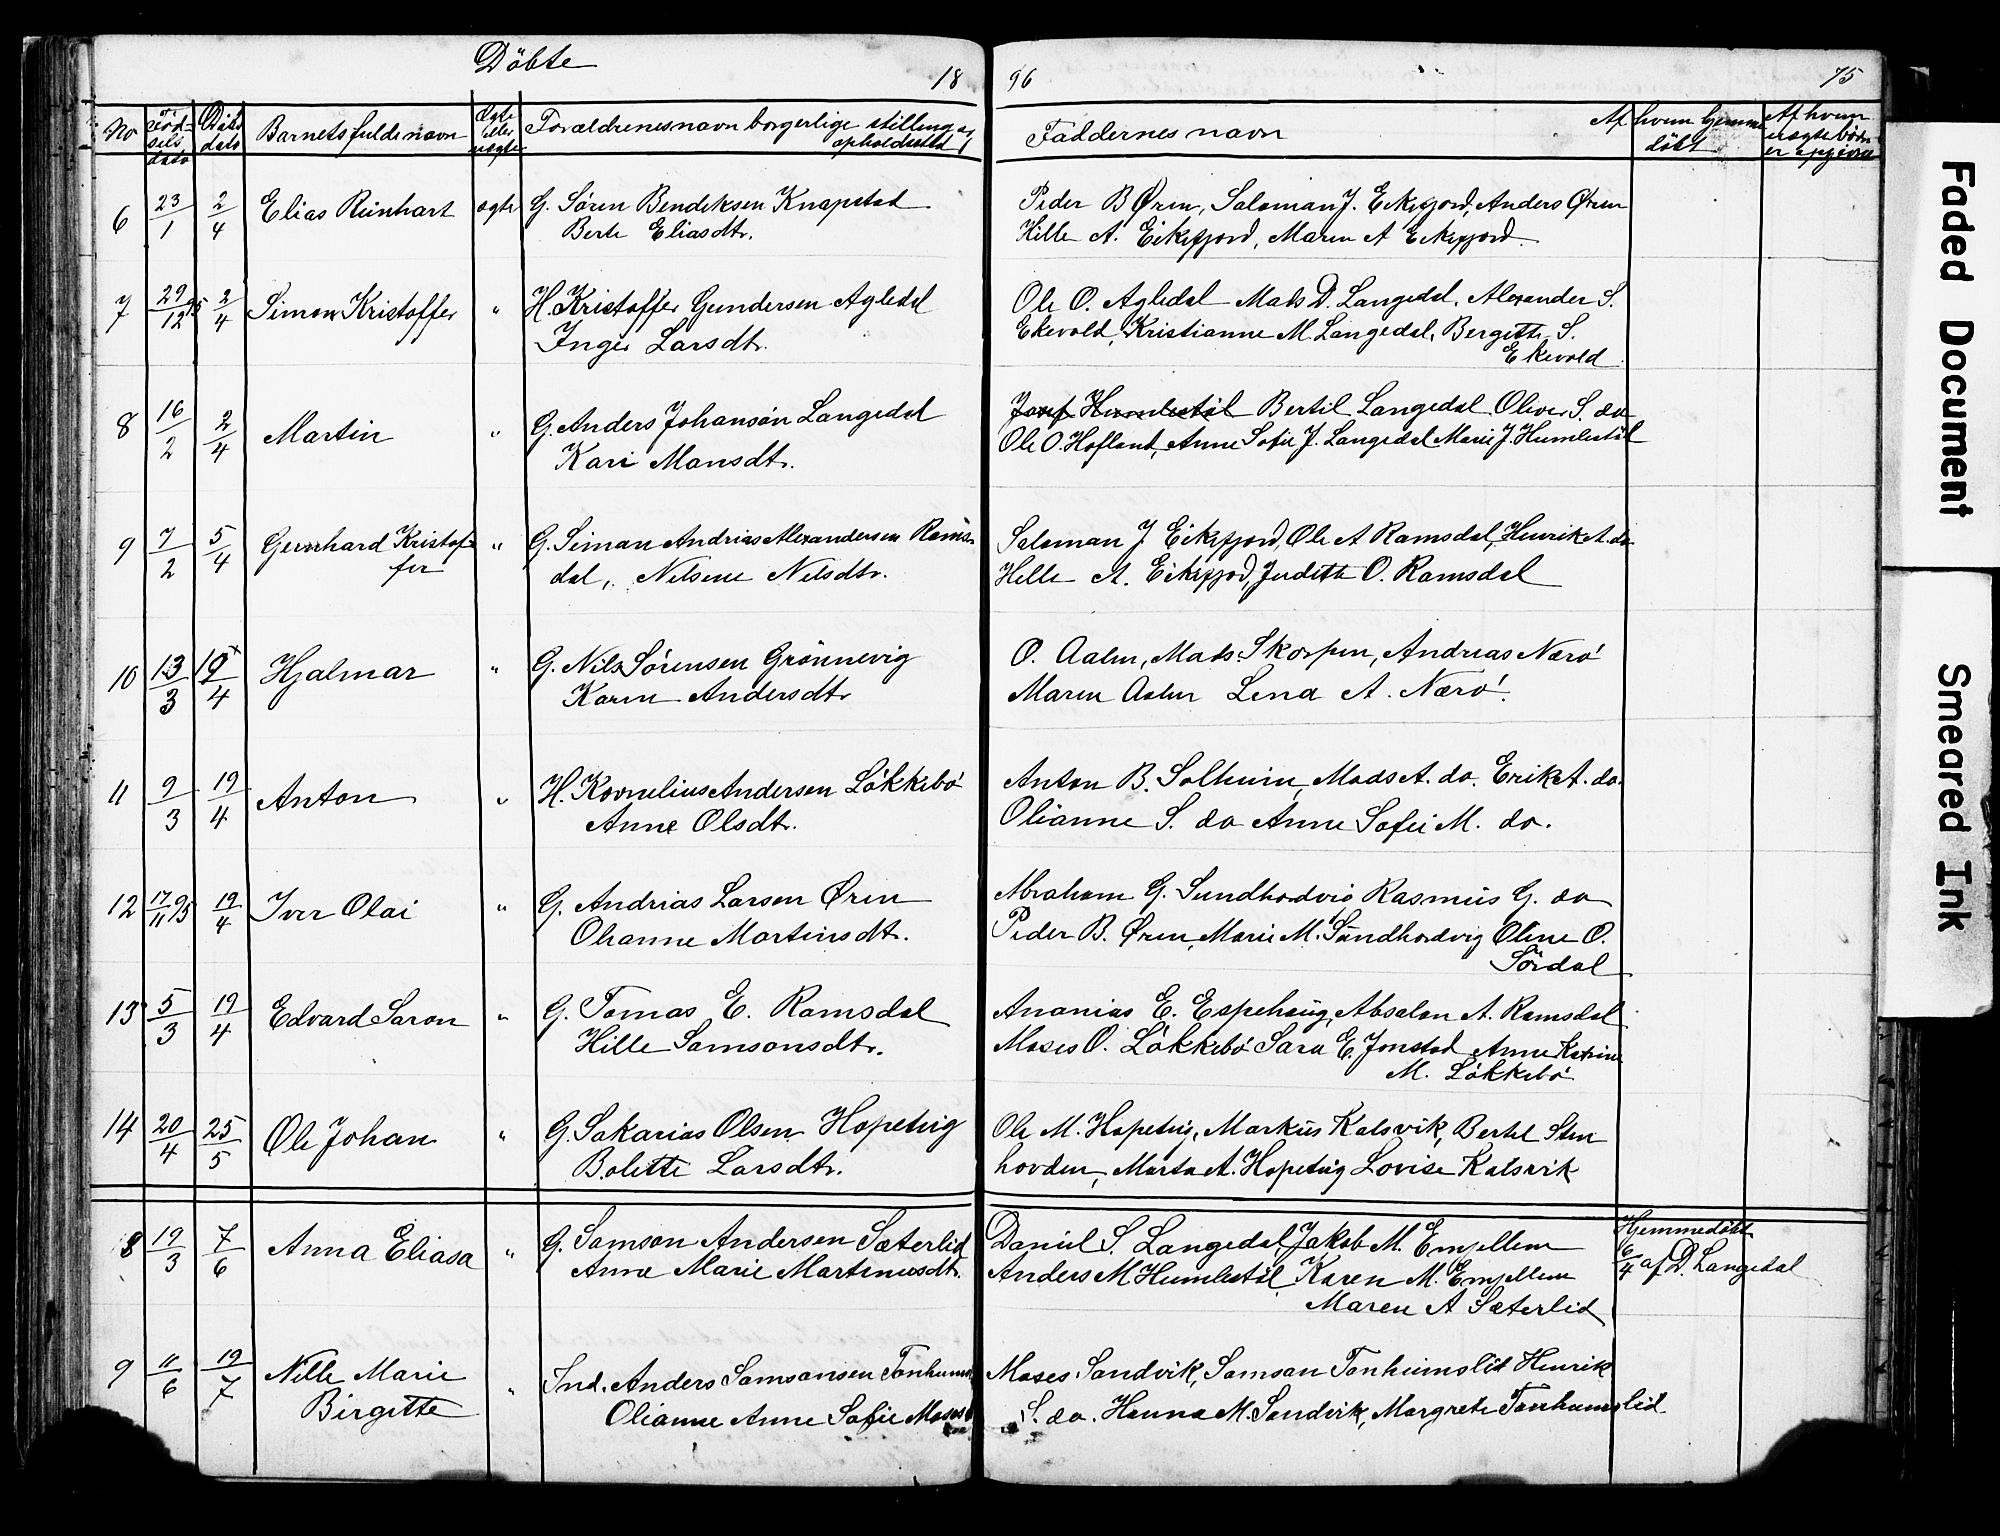 Döbte
18
96
75
No
Föd-
sels
dato
Döbs
dato
Barnets fulde navn
Ægte
eller
uægte
Forældrenes navn borgerlige stilling og
opholdssted
Faddernes navn
Af hvem hjemme
döbt
Af hvem
uægte börn
er opgivne
6 23/1 2/4 Elias Reinhart ægte G. Sören Bendiksen Knapstad
Berte Eliasdtr.
Peder B Øren, Salaman J. Eikefjord, Anders Øren
Hille A. Eikefjord, Maren A Eikefjord.
7 29/12 95 2/4 Simon Kristoffer " H. Kristoffer Gundersen Agledal
Inger Larsdtr.
Ole O. Agledal Mads D. Langedal, Alexander S.
Ekevold, Kristianne M. Langedal, Bergitte S.
Ekevold
8 16/2 2/4 Martin " G. Anders Johanson Langedal
Kari Monsdtr.
Josef Humlestöl Bertil Langedal Oliver S. do
Ole O. Hofland, Anne Sofie J. Langedal Marie J. Humlestöl
9 7/2 5/4 Gerhard Kristof-
fer
" G. Siman Andrias Alexandersen Rams-
dal, Nilsine Nilsdtr.
Salaman J Eikefjord, Ole A Ramsdal, Henrik A. do
Hille A. Eikefjord, Judith O. Ramsdal
10 13/3 19/4 Hjalmar " G. Nils Sörensen Grönnevig
Karen Andersdtr
O. Aalen, Mads Skorpen, Andreas Nærö
Maren Aalen Lena A. Nærö.
11 9/3 19/4 Anton " H. Kornelius Andersen Lökkebö
Anne Olsdtr.
Anton B. Solheim, Mads A. do. Erik A. do.
Olianne S. do Anne Sofie M. do.
12 17/11 95 19/4 Iver Olai " G. Andrias Larsen Øren
Olianne Martinsdtr.
Abraham G. Sundhordvig Rasmus G. do
Peder B. Øren, Marie M. Sundhordvig Oline O.
Sördal
13 5/3 19/4 Edvard Saron " G. Tomas E. Ramsdal
Hille Samsonsdtr.
Ananias E. Espehaug, Absalon A. Ramsdal
Moses O. Lökkebö Sara E. Jonstad Anne Katrine
M. Lökkebö
14 20/4 25/5 Ole Johan " G. Sakarias Olsen Hopeteig
Bolette Larsdtr.
Ole M. Hopeteig, Markus Kalsvik, Bertel Sten
hovden, Marta A. Hopeteig Lovise Kalsvik
8 19/3 7/6 Anna Eliasa " G. Samson Andersen Sæterlid
Anne Marie Martinusdtr.
Daniel S. Langedal, Jakob M. Emjellem
Anders M Humlestöl Karen M. Emjellem
Maren A Sæterlid
Hjemmedöbt
6/4 af D. Langedal
9 11/6 19/7 Nille Marie
Birgitte
" Ind. Anders Samsonsen Tonheims
Olianne Anne Sofie Moses
Moses Sandvik, Samson Tonheimslid Henrik
S. do. Hanna M. Sandvik, Margrete Tonheimslid
Faded Document
Smeared Ink